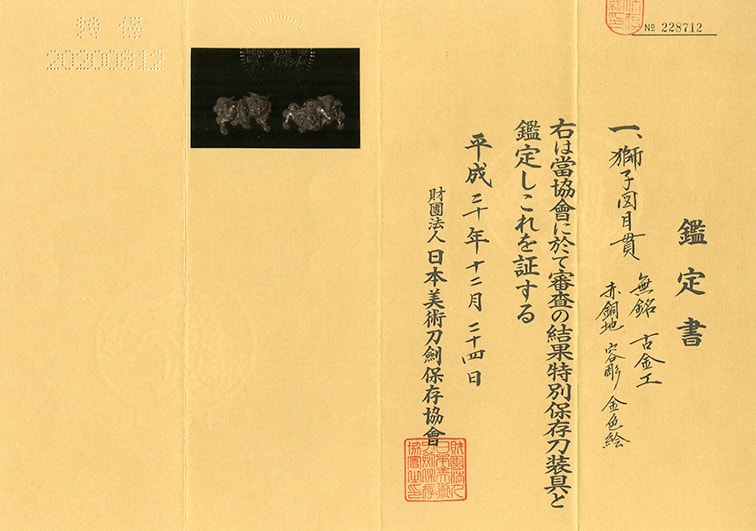 鑑定書
一、獅子図目貫 無銘 古金工
赤銅地 容彫 金色絵
右は當協會に於て審査の結果特別保存刀装具と
鑑定しこれを証する
平成二十年十二月二十四日
財團法人 日本美術刀劍保存協會
№ 228712
20200812